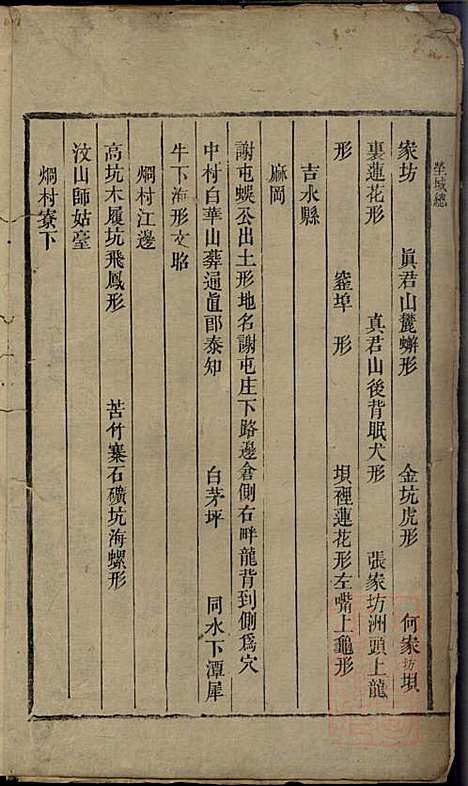 塋域總
家坊　眞君山麓蠏形　金坑虎形　何家坊垻
裏蓮花形　真君山後背眠犬形　張家坊洲頭上龍
形　窰埠形　垻裡蓮花形左嘴上龜形
吉水縣
麻岡
謝屯蜈公出土形地名謝屯庄下路邊倉側右畔龍背到側爲穴
中村白華山葬通眞郎泰知　白茅坪　同水下潭犀
牛下海形文昭
燗村江邊
高坑木履坑飛鳳形　苦竹寨石礦坑海螺形
汶山師姑臺
燗村寮下